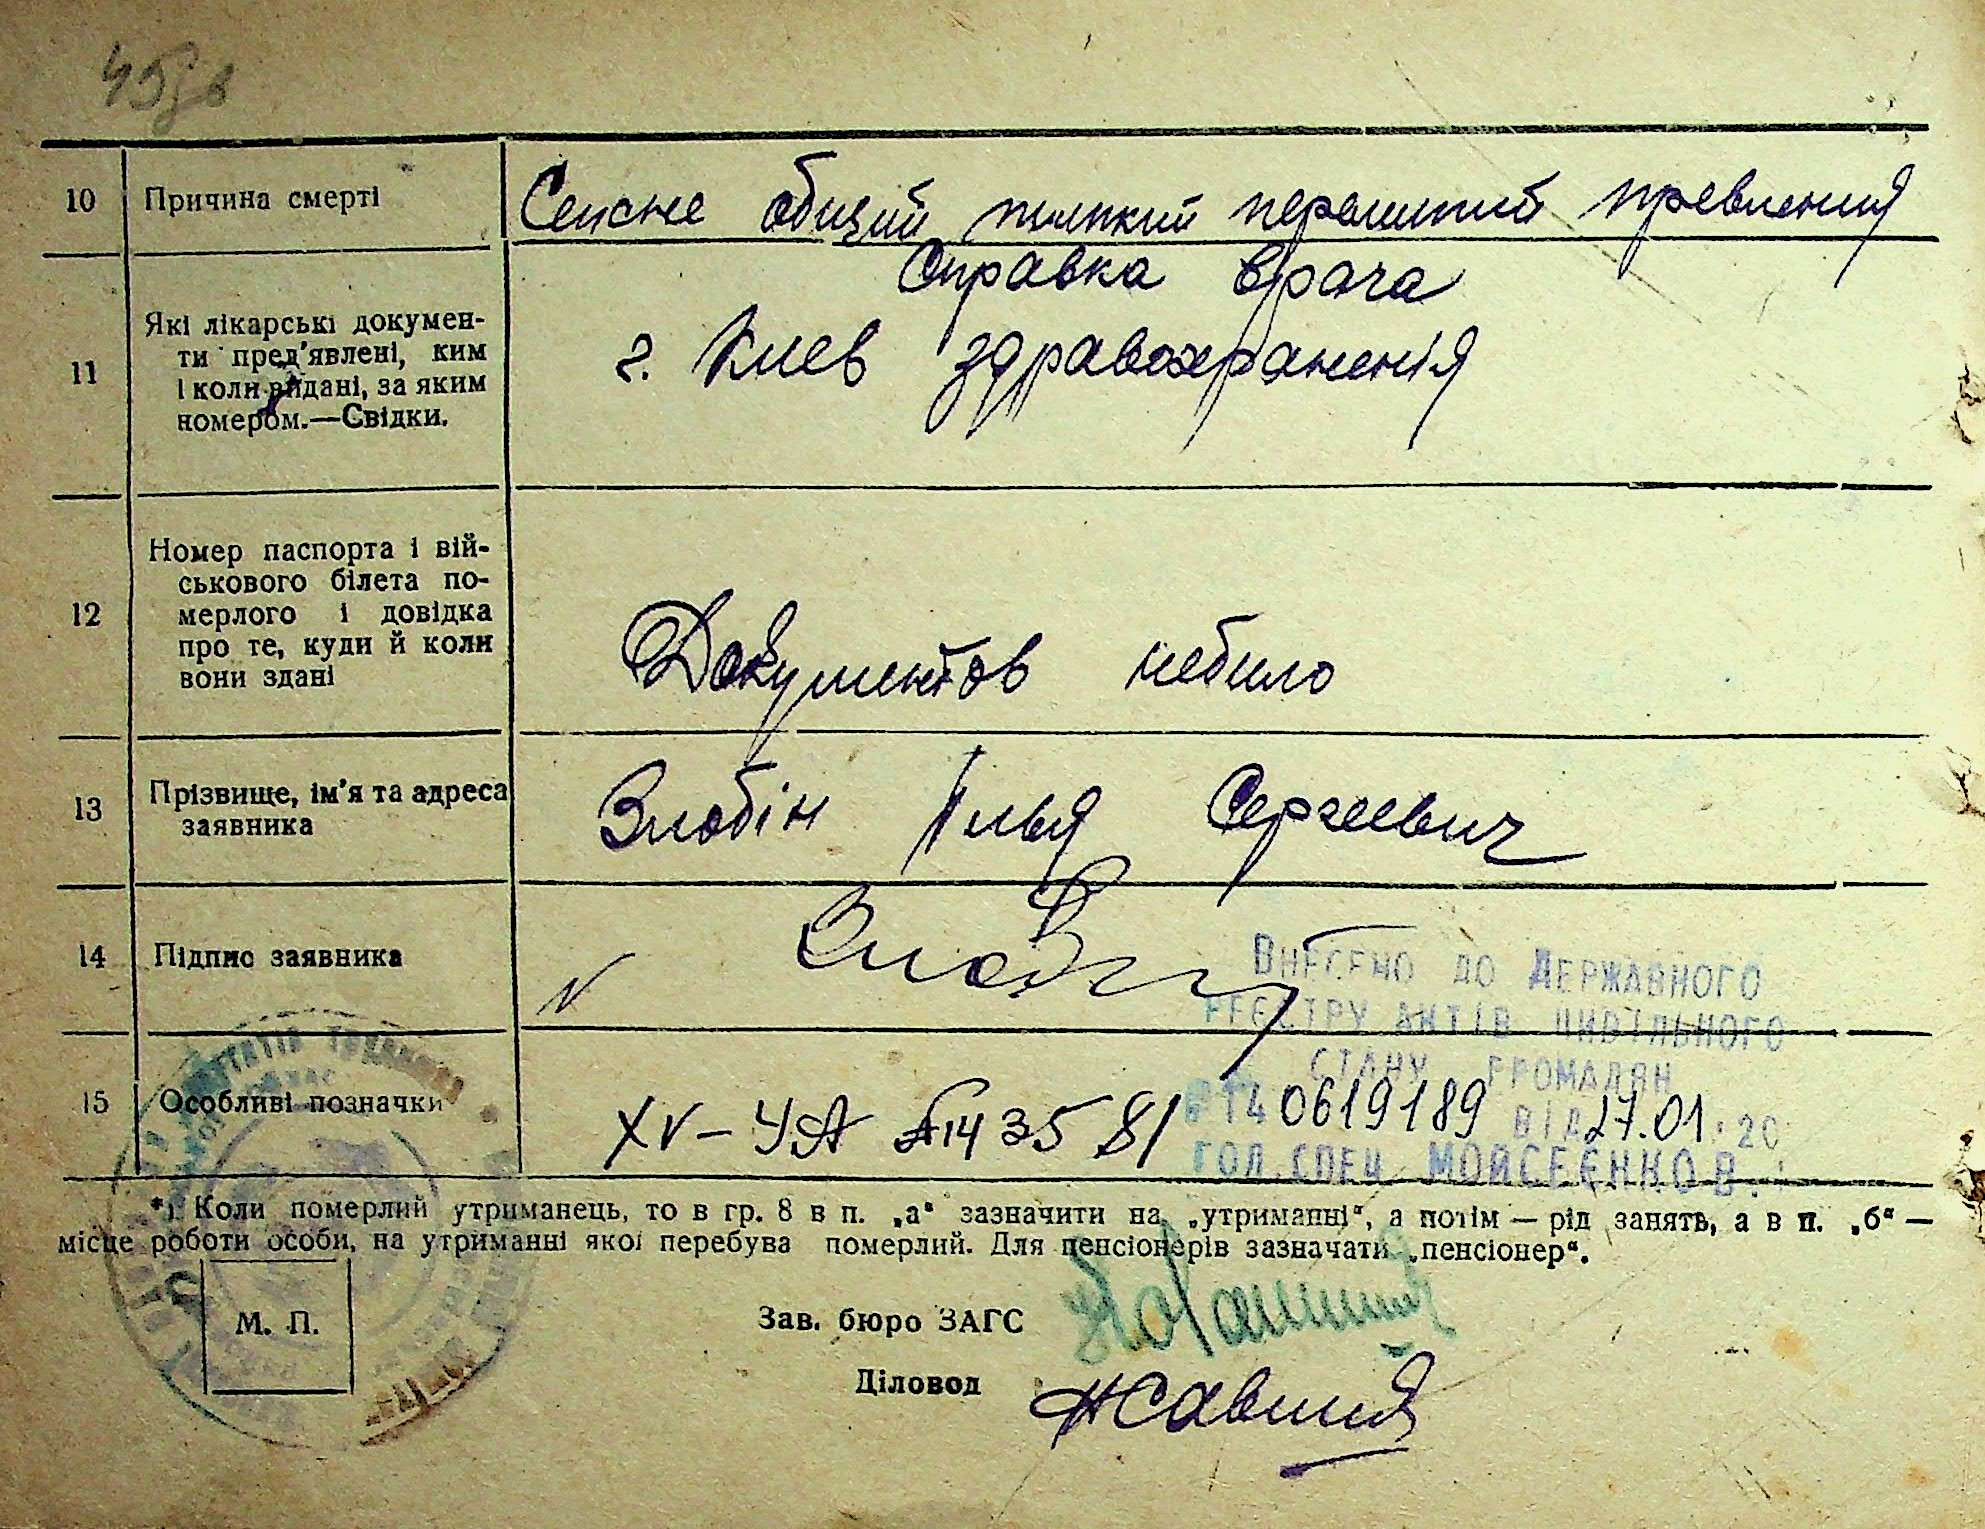 10 Причина смерті Сепсне общий
Справка врача
11 Які лікарські докумен-
ти пред'явлені, ким
і коли видані, за яким
номером.—Свідки.
г. Киев здравохраненія
12 Номер паспорта і вій-
ськового білета по-
мерлого і довідка
про те, куди й коли
вони здані
Документов небило
13 Прізвище, ім'я та адреса
заявника
Злобін Ілья Сергеевич
14 Підпис заявника
Внесено до Державного
реєстру актів цивільного
стану громадян
15 Особливі позначки XV-УА №143581
0619189 від 27.01.20
гол.спец Мойсеєнко В.
*) Коли померлий утриманець, то в гр. 8 в п. „а“ зазначити на „утриманні“, а потім — рід занять, а в п. „б“ —
місце роботи особи, на утриманні якої перебува померлий. Для пенсіонерів зазначати „пенсіонер“.
М. П.
Зав. бюро ЗАГС
Діловод